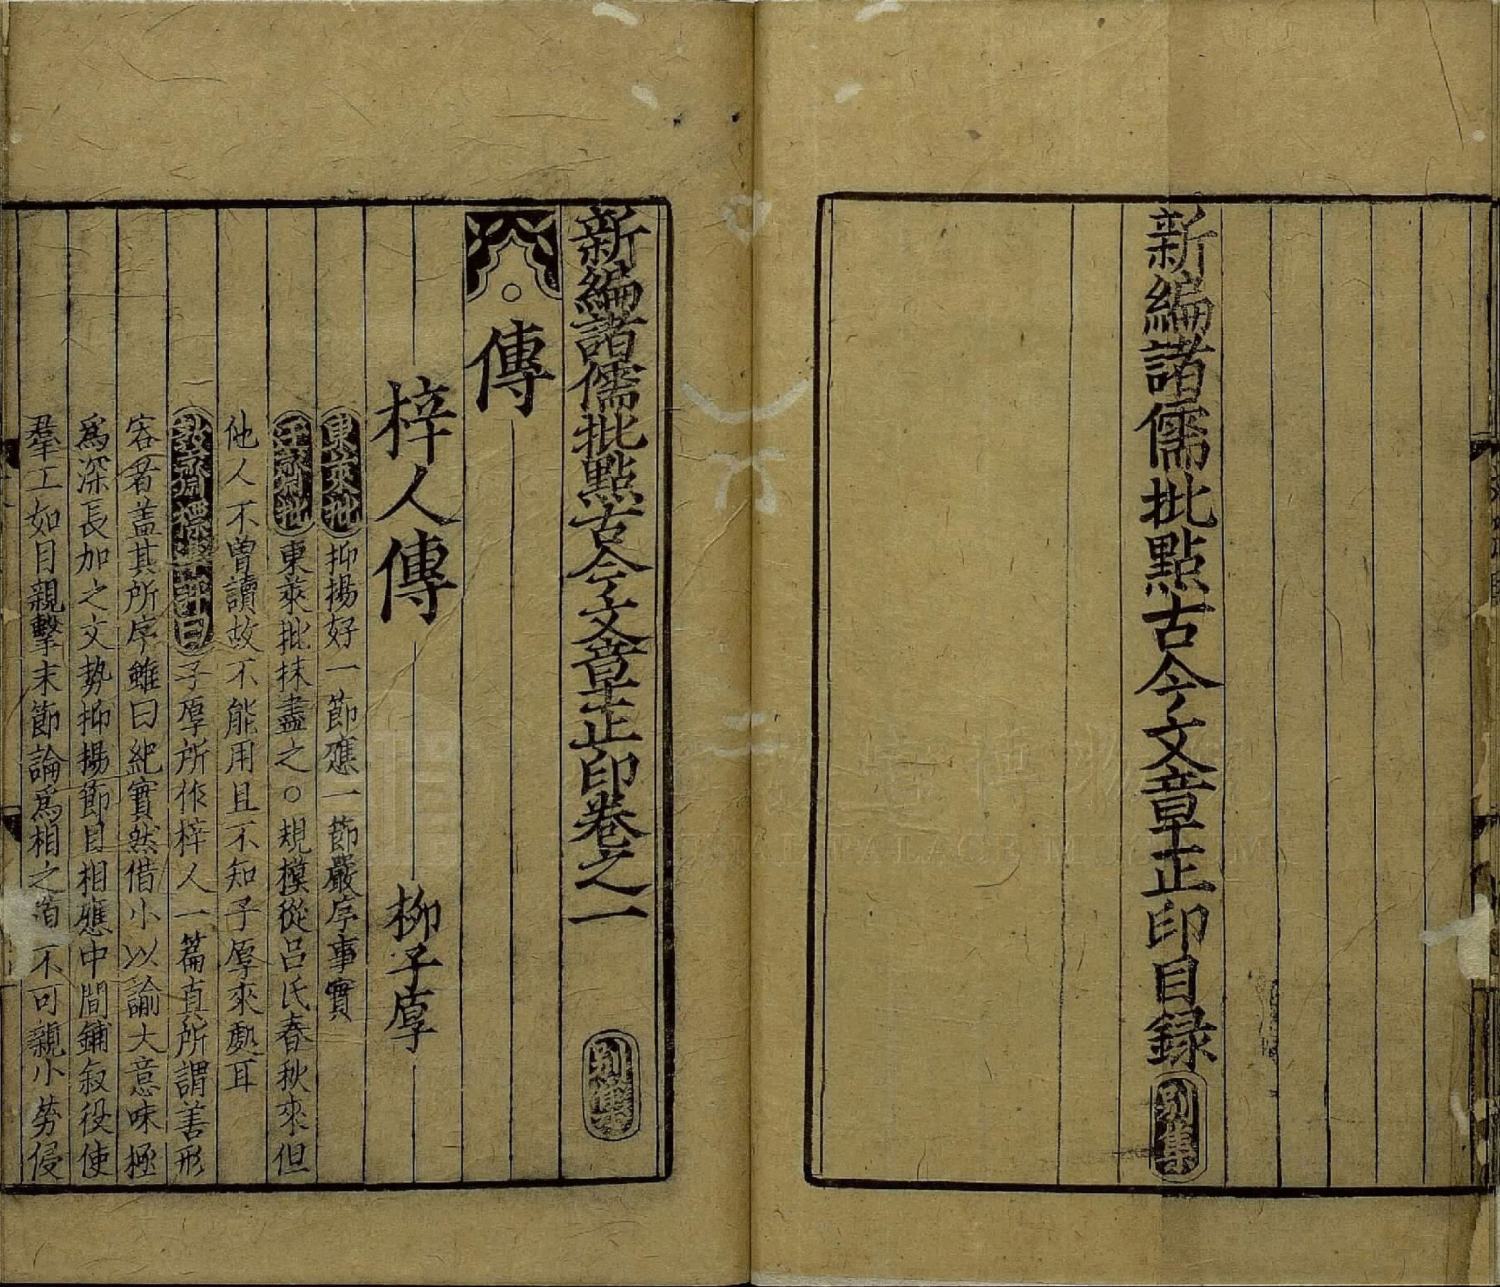 新編諸儒批點古今文章正印目録 別集
新編諸儒批點古今文章正印卷之一 別集
○傳
梓人傳 柳子厚
東萊批 抑揚好一節應一節嚴序事實
迂齋批 東萊批抹盡之○規模從呂氏春秋來但
他人不曾讀故不能用且不知子厚來處耳
敩齋標準印曰 子厚所作梓人一篇真所謂善形
容者蓋其所序雖曰紀實然借小以諭大意味極
爲深長加之文勢抑揚節目相應中間鋪敍役使
羣工如目親擊末節論爲相之道不可親小勞侵